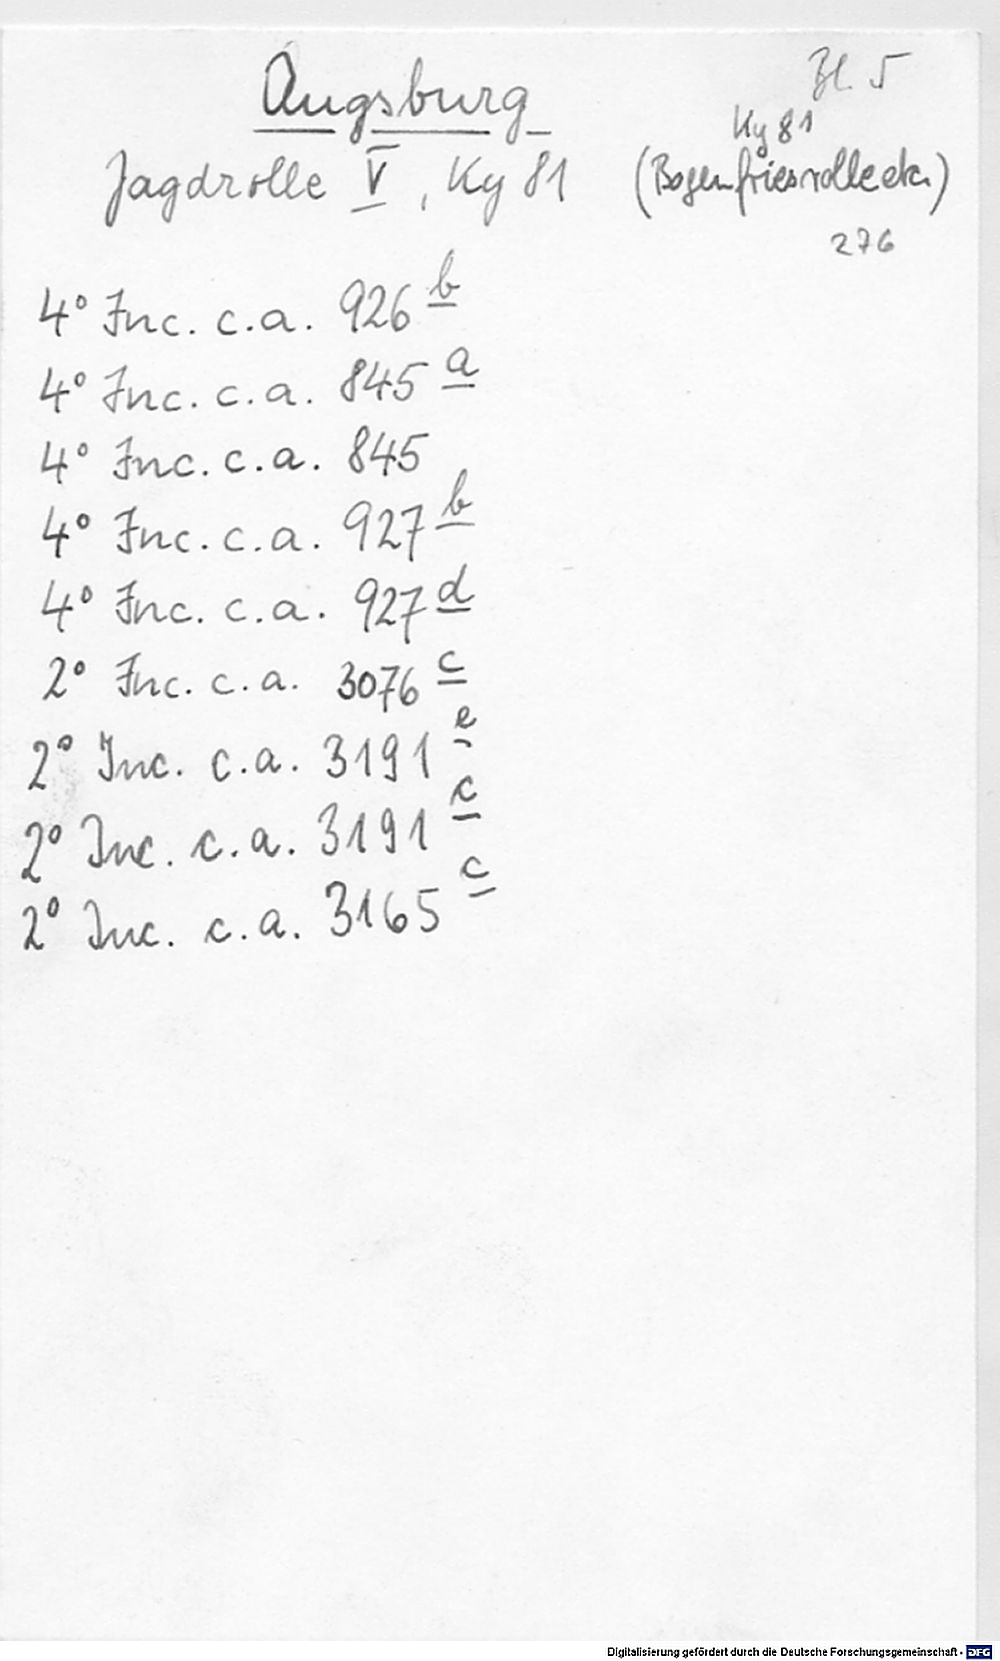 Augsburg
Bl. 5
Ky 81
Jagdrolle V, Ky 81
(Bogenfriesrolle etc.)
276
4° Inc. c.a. 926 b
4° Inc. c.a. 845 a
4° Inc. c.a. 845
4° Inc. c.a. 927 b
4° Inc. c.a. 927 d
2° Inc. c.a. 3076 c
2° Inc. c.a. 3191 e
2° Inc. c.a. 3191 c
2° Inc. c.a. 3165 c
Digitalisierung gefördert durch die Deutsche Forschungsgemeinschaft - DFG